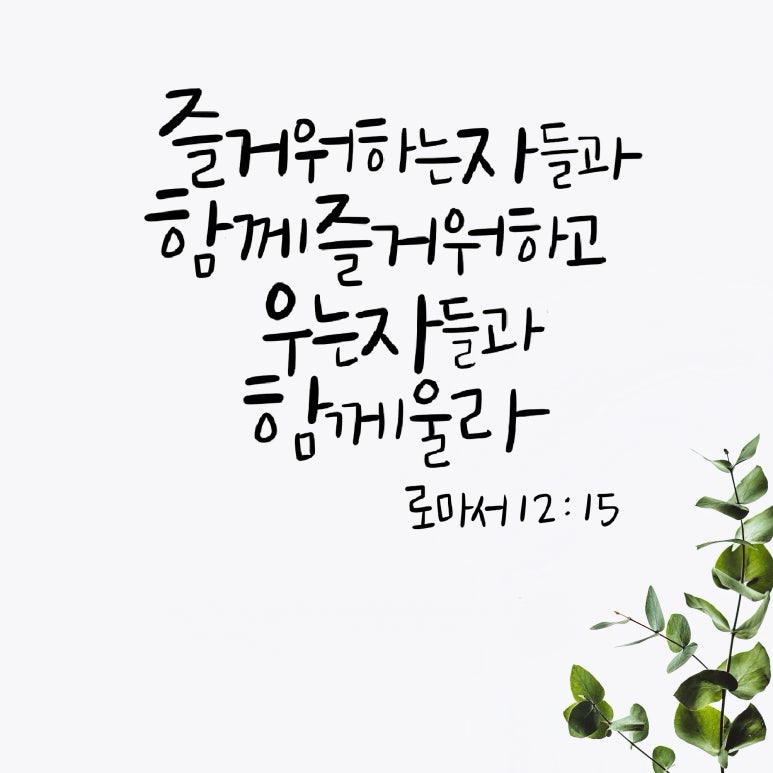 즐거워하는자들과
함께즐거워하고
우는자들과
함께울라
로마서12:15